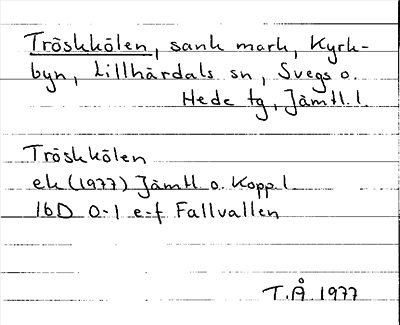 Tröskkölen, sank mark, Kyrk-
byn, Lillhärdals sn, Svegs o.
Hede tg, Jämtl. l.
Tröskkölen
ek (1977) Jämtl o. Kopp. l
16D 0-1 e-f Fallvallen
T.Å 1977